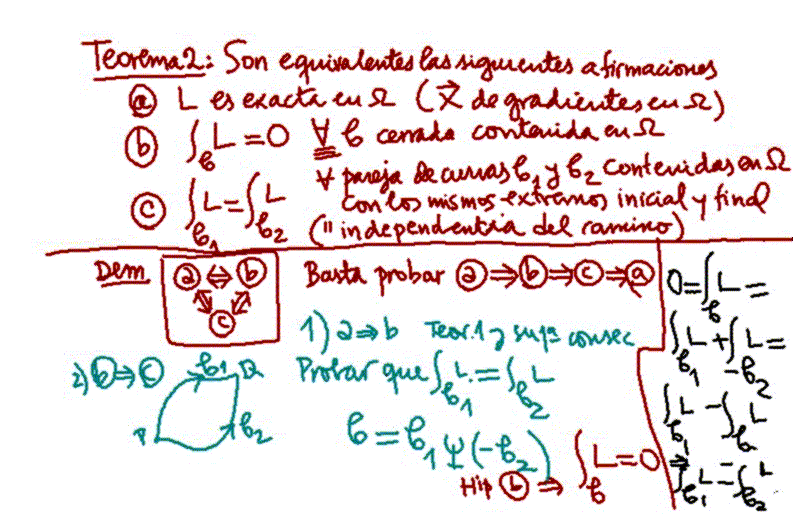 Teorema 2: Son equivalentes las siguientes afirmaciones
ⓐ L es exacta en Ω (X⃗ de gradientes en Ω)
ⓑ ∫_ℭ L = 0 ∀ ℭ cerrada contenida en Ω
ⓒ ∫_ℭ₁ L = ∫_ℭ₂ L ∀ pareja de curvas ℭ₁ y ℭ₂ contenidas en Ω
con los mismos extremos inicial y final
(" independentria del ramino)
Dem ⓐ ⇔ ⓑ
⇕ ⇕
ⓒ
Basta probar ⓐ ⇒ ⓑ ⇒ ⓒ ⇒ ⓐ
1) a ⇒ b Teor. 1 y su 1ª consec
2) ⓑ ⇒ ⓒ
ℭ₁ Q
P ℭ₂
Probar que ∫_ℭ₁ L = ∫_ℭ₂ L
ℭ = ℭ₁ Ψ (-ℭ₂)
Hip ⓑ ⇒ ∫_ℭ L = 0 ⇒
0 = ∫_ℭ L =
∫_ℭ₁ L + ∫_-ℭ₂ L =
∫_ℭ₁ L - ∫_ℭ₂ L
∫_ℭ₁ L = ∫_ℭ₂ L